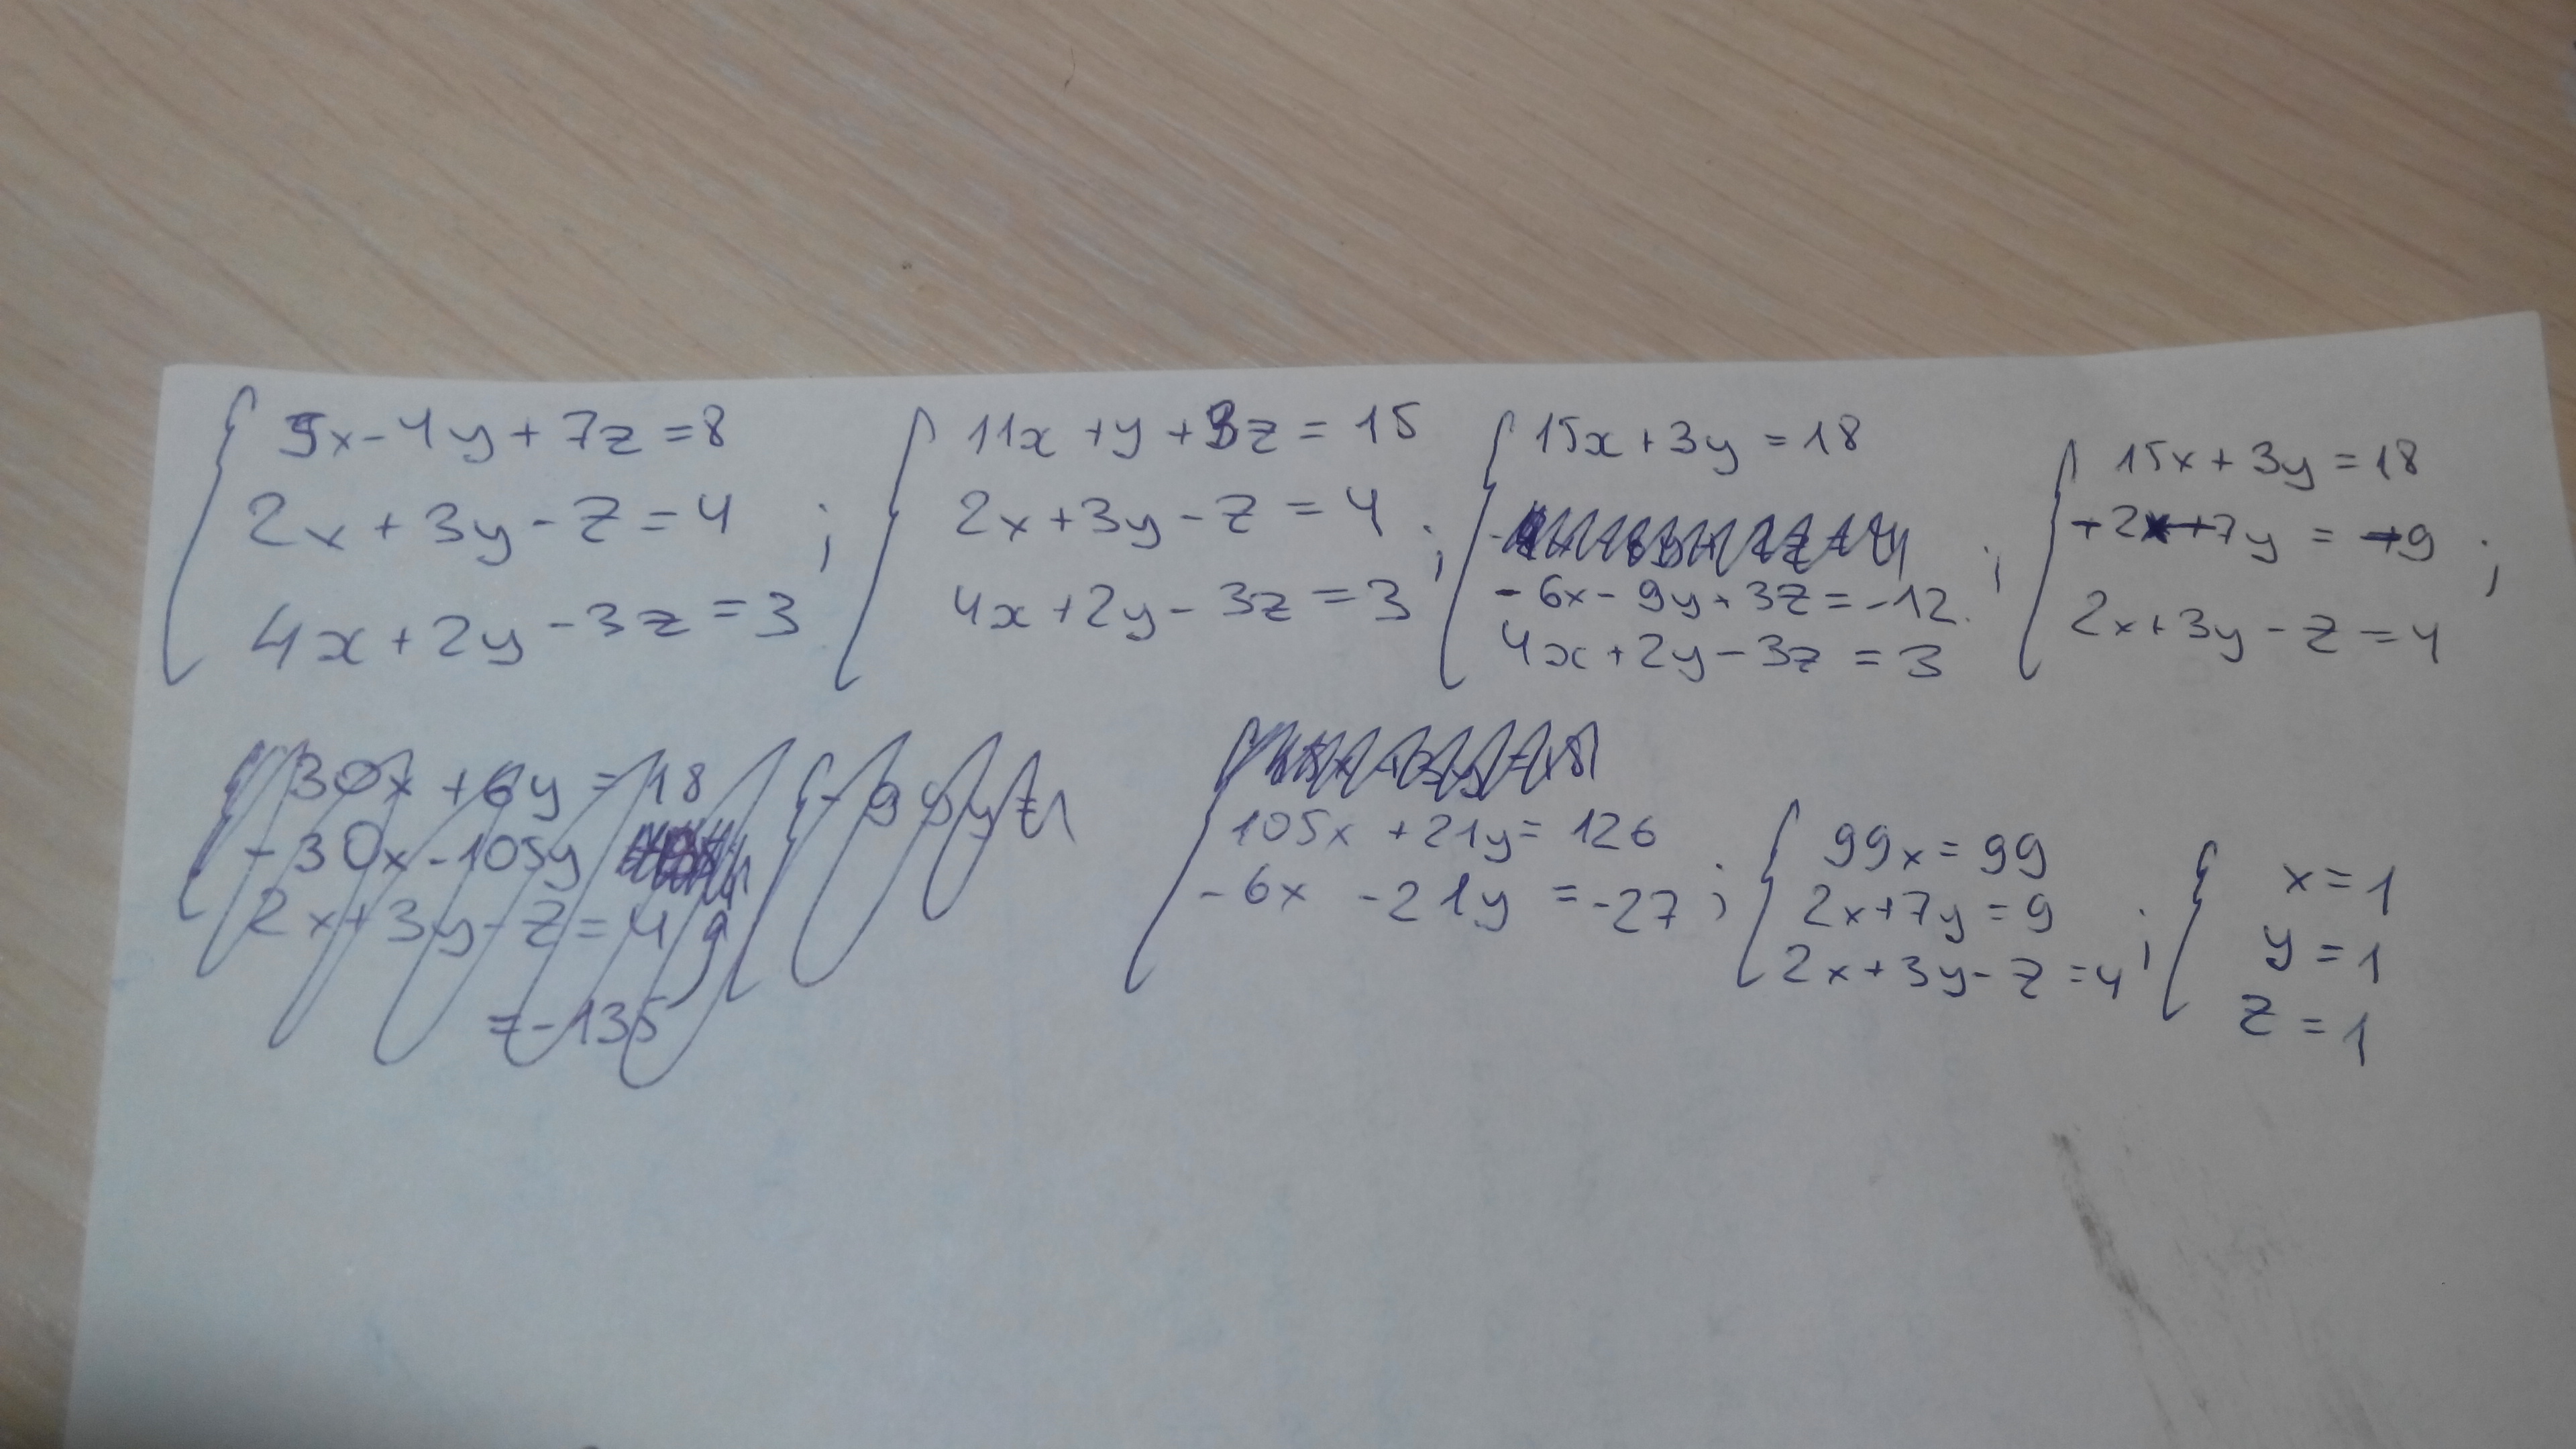 5x-4y+7z=8
2x+3y-z=4 ;
4x+2y-3z=3
11x+y+3z=15
2x+3y-z=4 ;
4x+2y-3z=3
15x+3y=18
-6x-9y+3z=-12 ;
4x+2y-3z=3
15x+3y=18
+2x+7y=+9 ;
2x+3y-z=4
30x+6y=18
-30x-105y
2x+3y-z=4
=-135
105x+21y=126
-6x -21y=-27 ;
99x=99
2x+7y=9 ;
2x+3y-z=4
x=1
y=1
z=1